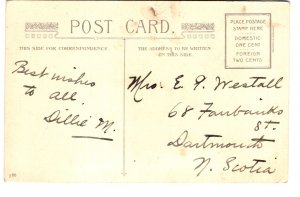 POST CARD.
THIS SIDE FOR CORRESPONDENCE.
THE ADDRESS TO BE WRITTEN
ON THIS SIDE.
PLACE POSTAGE
STAMP HERE
DOMESTIC
ONE CENT
FOREIGN
TWO CENTS
Best wishes
to all.
Dillie M.
Mrs. E. P. Westall
68 Fairbanks
St.
Dartmouth
N. Scotia